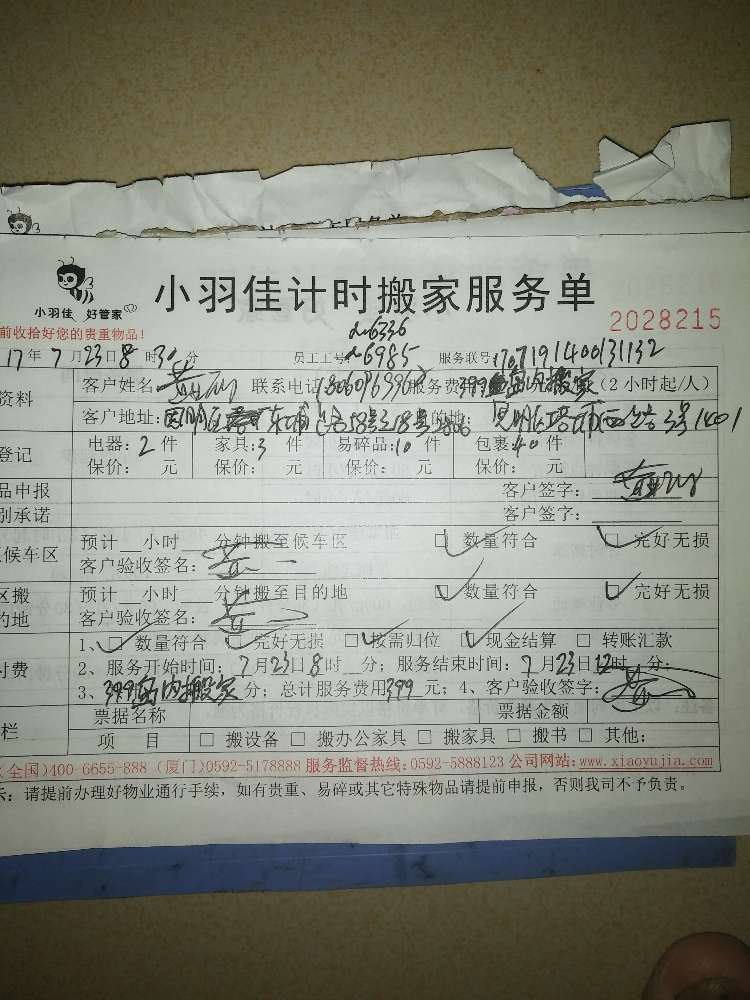 小羽佳 好管家
小羽佳计时搬家服务单
2028215
前收拾好您的贵重物品!
6336
17年7月23日8时30分 员工工号: 6985 服务联号:1707191400131132
资料 客户姓名: 黄 联系电话 服务费 399岛内搬家(2小时起/人)
客户地址: 东埔 58号之18号 的地: 思明区 3号1401
登记 电器:2件 家具:3件 易碎品:10件 包裹:40件
保价: 元 保价: 元 保价: 元 保价: 元
品申报 客户签字: 黄
别承诺 客户签字:
候车区 预计 小时 分钟搬至候车区 ☑ 数量符合 ☑ 完好无损
客户验收签名: 黄
区搬 预计 小时 分钟搬至目的地 ☑ 数量符合 ☑ 完好无损
的地 客户验收签名: 黄
1、☑ 数量符合 ☑ 完好无损 ☑ 按需归位 ☑ 现金结算 □ 转账汇款
付费 2、服务开始时间:7月23日8时 分;服务结束时间:7月23日12时 分;
3、399岛内搬家 分;总计服务费用399元;4、客户验收签字: 黄
票据名称 票据金额
栏 项 目 □ 搬设备 □ 搬办公家具 □ 搬家具 □ 搬书 □ 其他:
(全国)400-6655-888 (厦门)0592-5178888 服务监督热线:0592-5888123 公司网站:www.xiaoyujia.com
示:请提前办理好物业通行手续,如有贵重、易碎或其它特殊物品请提前申报,否则我司不予负责。